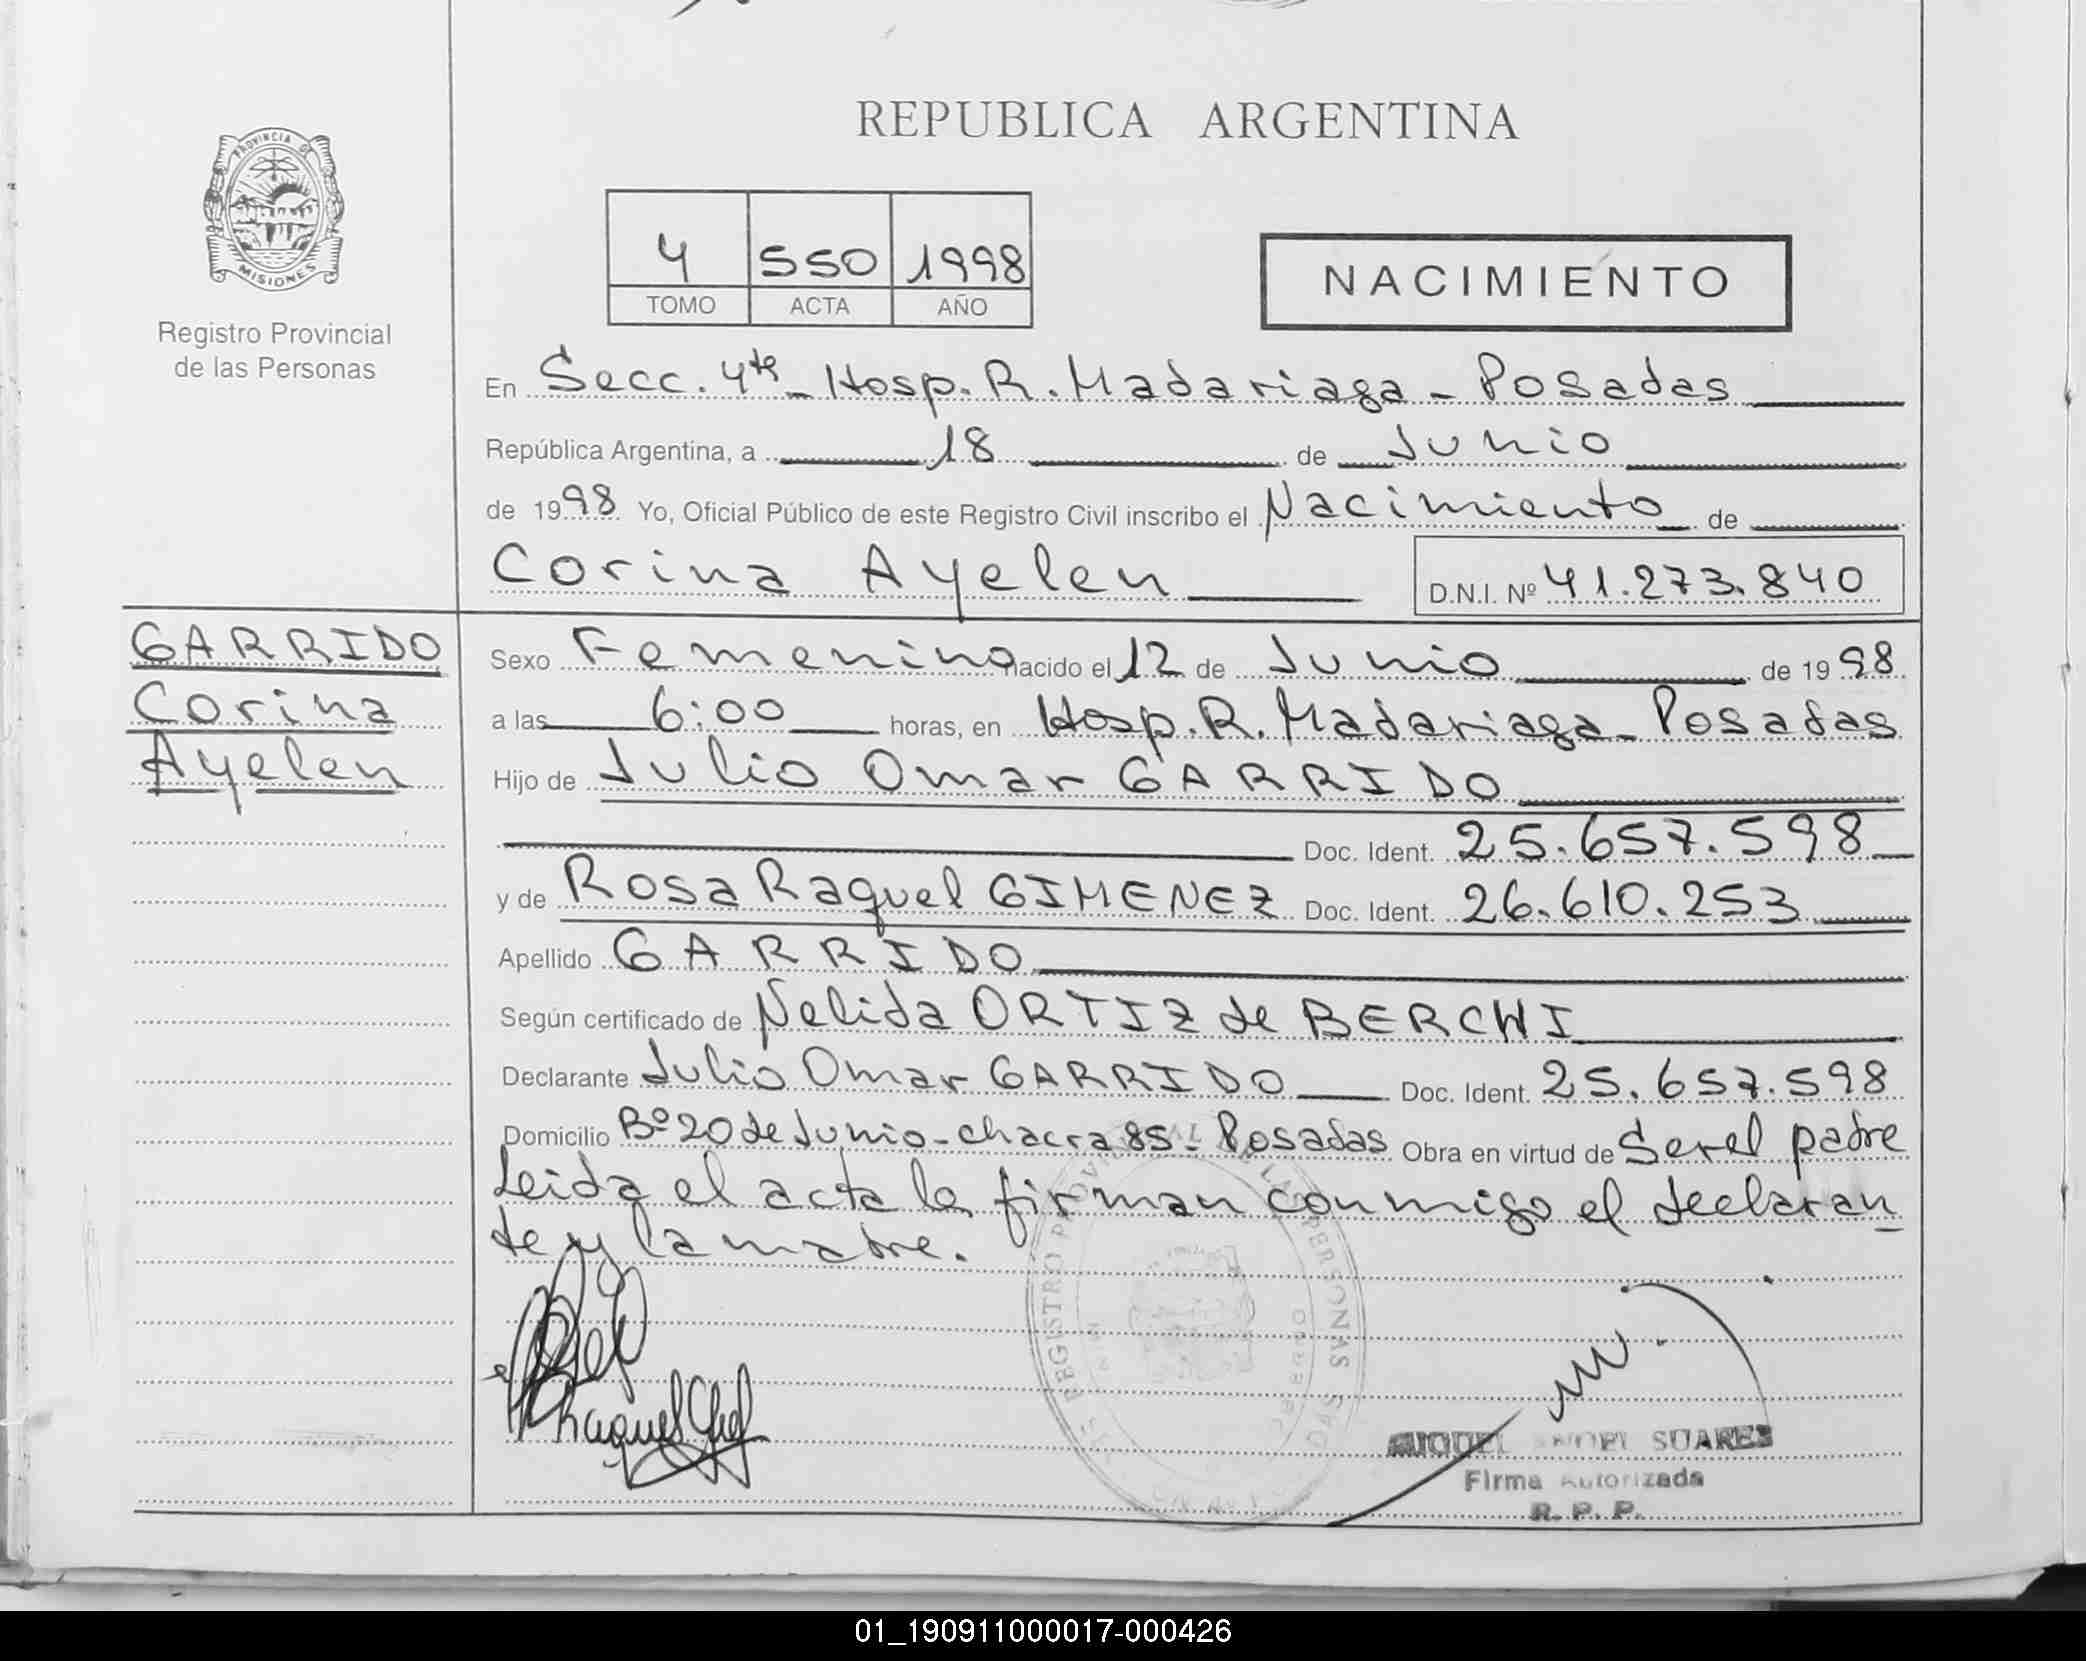 REPUBLICA ARGENTINA
PROVINCIA DE MISIONES
Registro Provincial
de las Personas
4 550 1998
TOMO ACTA AÑO
NACIMIENTO
En Secc. 4ta - Hosp. R. Madariaga - Posadas
República Argentina, a 18 de Junio
de 1998 Yo, Oficial Público de este Registro Civil inscribo el Nacimiento de
Corina Ayelen D.N.I. Nº 41.273.840
GARRIDO
Corina
Ayelen
Sexo Femenino nacido el 12 de Junio de 1998
a las 6:00 horas, en Hosp. R. Madariaga - Posadas
Hijo de Julio Omar GARRIDO
Doc. Ident. 25.657.598
y de Rosa Raquel GIMENEZ Doc. Ident. 26.610.253
Apellido GARRIDO
Según certificado de Nelida ORTIZ de BERCHI
Declarante Julio Omar GARRIDO Doc. Ident. 25.657.598
Domicilio Bº 20 de Junio - chacra 85 - Posadas Obra en virtud de Ser el padre
Leida el acta la firman conmigo el declaran
te y la madre.
REGISTRO PROVINCIAL DE LAS PERSONAS
Raquel
MIGUEL ANGEL SUARES
Firma Autorizada
R. P. P.
01_190911000017-000426